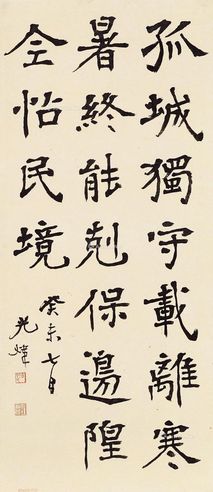 孤城獨守載離寒
暑終能剋保邊隍
全怡民境
癸未七月
光煒